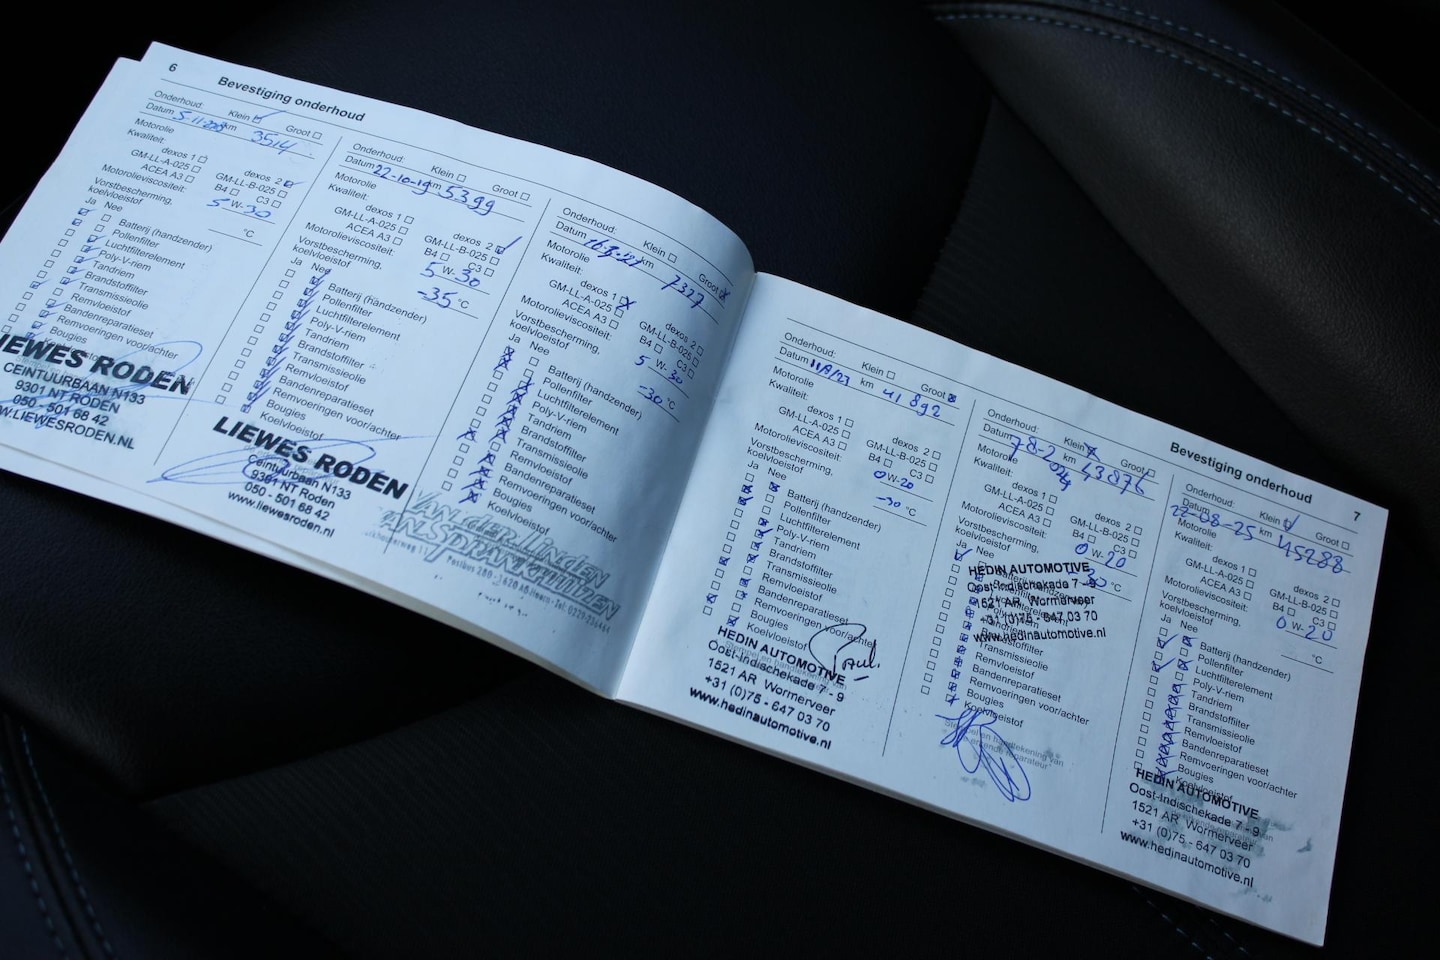 6 Bevestiging onderhoud
Onderhoud: Klein Groot
Datum 5-11-2018 km 3514
Motorolie
Kwaliteit:
dexos 1 dexos 2
GM-LL-A-025 GM-LL-B-025
ACEA A3 B4 C3
Motorolieviscositeit: 5 W- 30
Vorstbescherming,
koelvloeistof °C
Ja Nee
Batterij (handzender)
Pollenfilter
Luchtfilterelement
Poly-V-riem
Tandriem
Brandstoffilter
Transmissieolie
Remvloeistof
Bandenreparatieset
Remvoeringen voor/achter
Bougies
Koelvloeistof
LIEWES RODEN
CEINTUURBAAN N133
9301 NT RODEN
050 - 501 68 42
WWW.LIEWESRODEN.NL
Onderhoud: Klein Groot
Datum 22-10-19 km 5399
Motorolie
Kwaliteit:
dexos 1 dexos 2
GM-LL-A-025 GM-LL-B-025
ACEA A3 B4 C3
Motorolieviscositeit: 5 W- 30
Vorstbescherming,
koelvloeistof -35 °C
Ja Nee
Batterij (handzender)
Pollenfilter
Luchtfilterelement
Poly-V-riem
Tandriem
Brandstoffilter
Transmissieolie
Remvloeistof
Bandenreparatieset
Remvoeringen voor/achter
Bougies
Koelvloeistof
LIEWES RODEN
Ceintuurbaan N133
9301 NT Roden
050 - 501 68 42
www.liewesroden.nl
Onderhoud: Klein Groot
Datum km 7327
Motorolie
Kwaliteit:
dexos 1 dexos 2
GM-LL-A-025 GM-LL-B-025
ACEA A3 B4 C3
Motorolieviscositeit: 5 W- 30
Vorstbescherming,
koelvloeistof -30 °C
Ja Nee
Batterij (handzender)
Pollenfilter
Luchtfilterelement
Poly-V-riem
Tandriem
Brandstoffilter
Transmissieolie
Remvloeistof
Bandenreparatieset
Remvoeringen voor/achter
Bougies
Koelvloeistof
VAN der Linden
VAN SPRANKHUIZEN
Postbus 280
Bevestiging onderhoud 7
Onderhoud: Klein Groot
Datum km 41892
Motorolie
Kwaliteit:
dexos 1 dexos 2
GM-LL-A-025 GM-LL-B-025
ACEA A3 B4 C3
Motorolieviscositeit: 0 W- 20
Vorstbescherming,
koelvloeistof -30 °C
Ja Nee
Batterij (handzender)
Pollenfilter
Luchtfilterelement
Poly-V-riem
Tandriem
Brandstoffilter
Transmissieolie
Remvloeistof
Bandenreparatieset
Remvoeringen voor/achter
Bougies
Koelvloeistof
HEDIN AUTOMOTIVE
Oost-Indischekade 7 - 9
1521 AR Wormerveer
+31 (0)75 - 647 03 70
www.hedinautomotive.nl
Onderhoud: Klein Groot
Datum 7-8-2024 km 43876
Motorolie
Kwaliteit:
dexos 1 dexos 2
GM-LL-A-025 GM-LL-B-025
ACEA A3 B4 C3
Motorolieviscositeit: 0 W- 20
Vorstbescherming,
koelvloeistof °C
Ja Nee
HEDIN AUTOMOTIVE
Oost-Indischekade 7 - 9
1521 AR Wormerveer
+31 (0)75 - 647 03 70
www.hedinautomotive.nl
Brandstoffilter
Transmissieolie
Remvloeistof
Bandenreparatieset
Remvoeringen voor/achter
Bougies
Koelvloeistof
Onderhoud: Klein Groot
Datum 22-08-25 km 45288
Motorolie
Kwaliteit:
dexos 1 dexos 2
GM-LL-A-025 GM-LL-B-025
ACEA A3 B4 C3
Motorolieviscositeit: 0 W- 20
Vorstbescherming,
koelvloeistof °C
Ja Nee
Batterij (handzender)
Pollenfilter
Luchtfilterelement
Poly-V-riem
Tandriem
Brandstoffilter
Transmissieolie
Remvloeistof
Bandenreparatieset
Remvoeringen voor/achter
Bougies
Koelvloeistof
HEDIN AUTOMOTIVE
Oost-Indischekade 7 - 9
1521 AR Wormerveer
+31 (0)75 - 647 03 70
www.hedinautomotive.nl